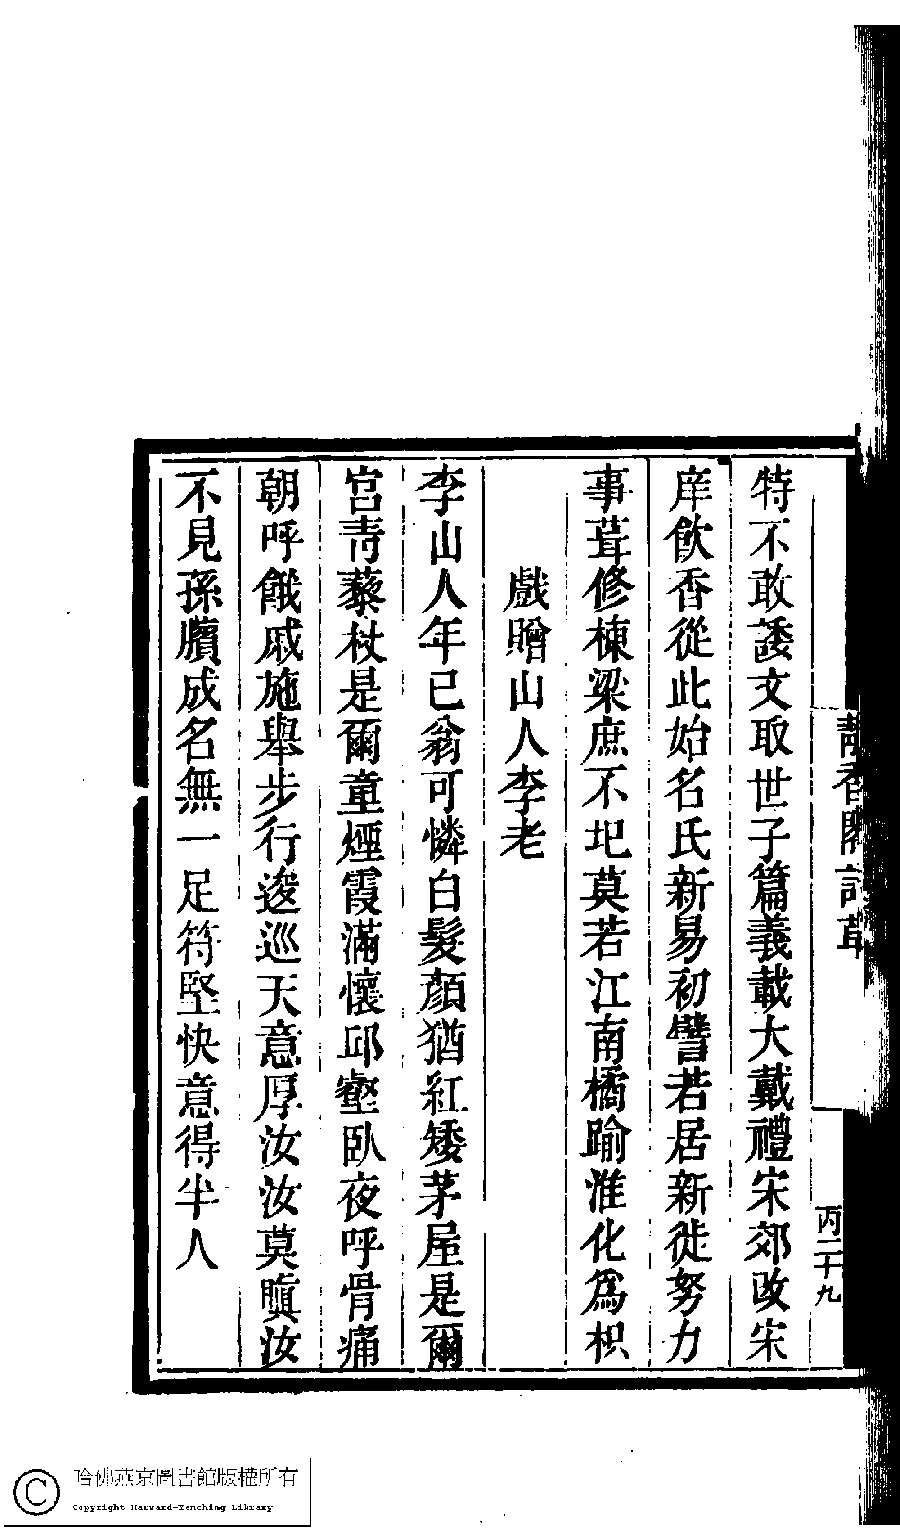 特不敢諉文取世子篇義載大戴禮宋郊改宋
庠飲香從此始名氏新易初譬若居新徙努力
事葺修棟梁庶不圮莫若江南橘踰淮化爲枳
戲贈山人李老
李山人年已翁可憐白髮顏猶紅矮茅屋是爾
宮靑藜杖是爾童煙霞滿懷邱壑臥夜呼骨痛
朝呼餓戚施舉步行逡巡天意厚汝汝莫瞋汝
不見孫臏成名無一足符堅快意得半人
丙二十九
哈佛燕京圖書館版權所有
Copyright Harvard-Yenching Library